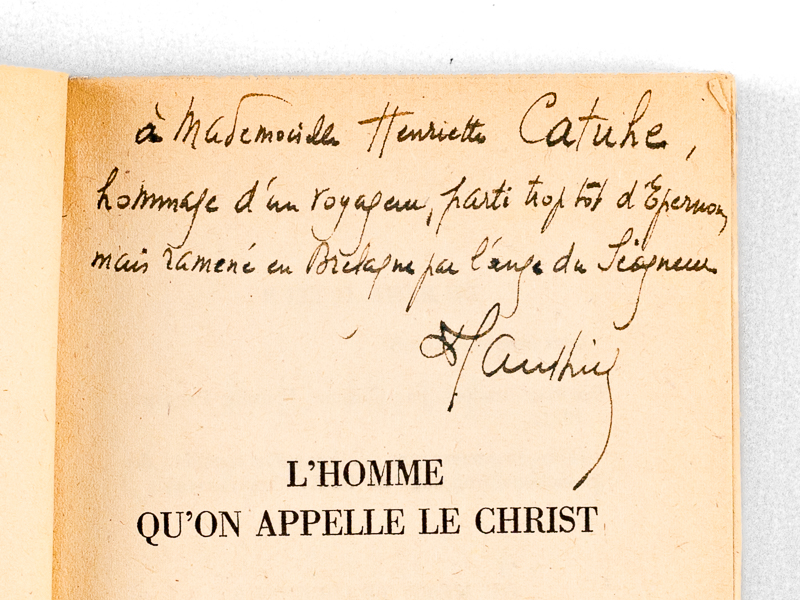 à Mademoiselle Henriette Catuhe,
hommage d'un voyageur, parti trop tôt d'Epernon,
mais ramené en Bretagne par l'ange du Seigneur
L'HOMME
QU'ON APPELLE LE CHRIST